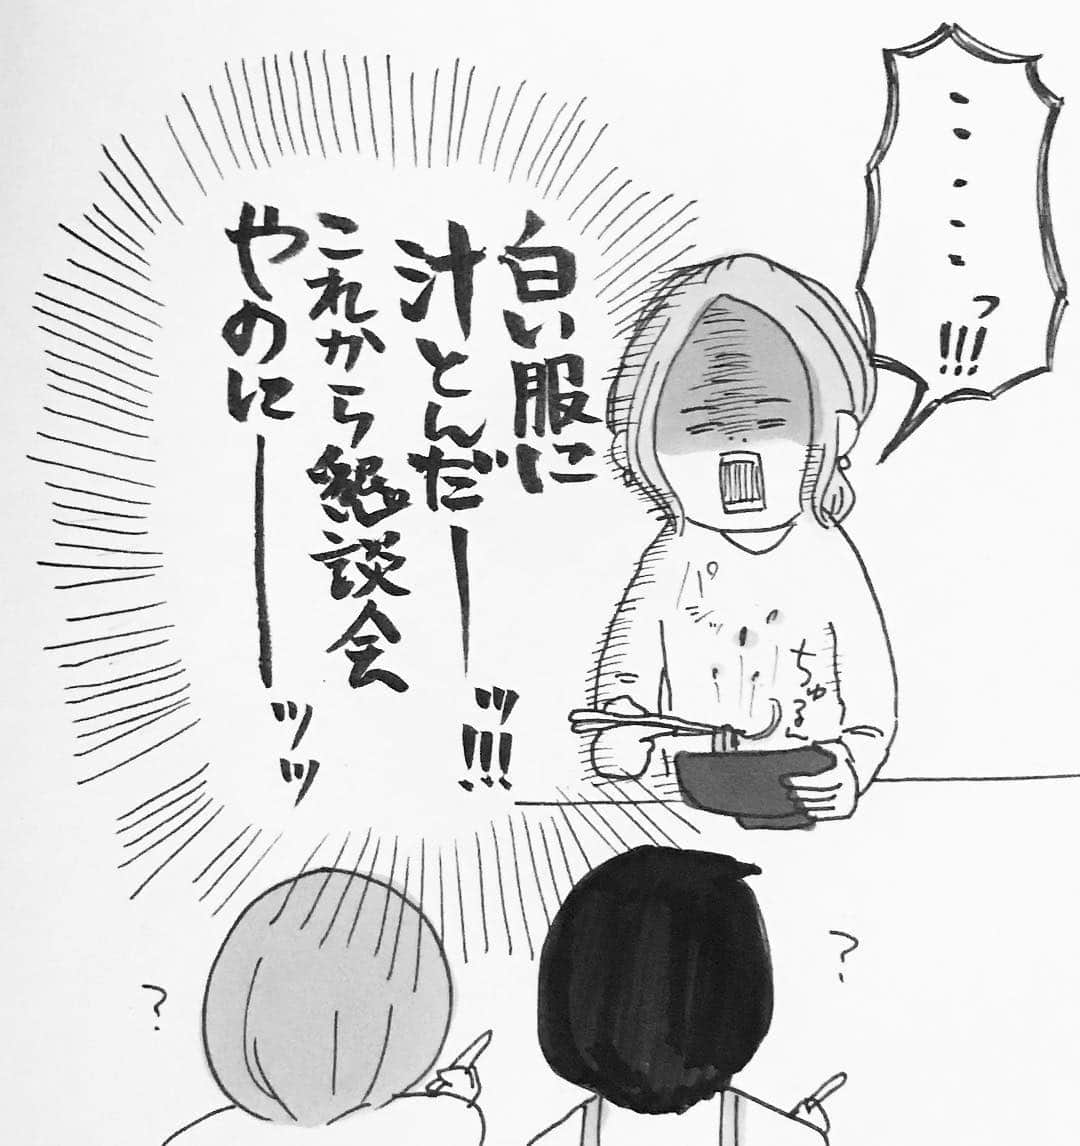 ・・・・・っ!!!
白い服に
汁とんだーッ!!!
これから懇談会
やのにーッッ
パシッ
ちゅるん
?
?